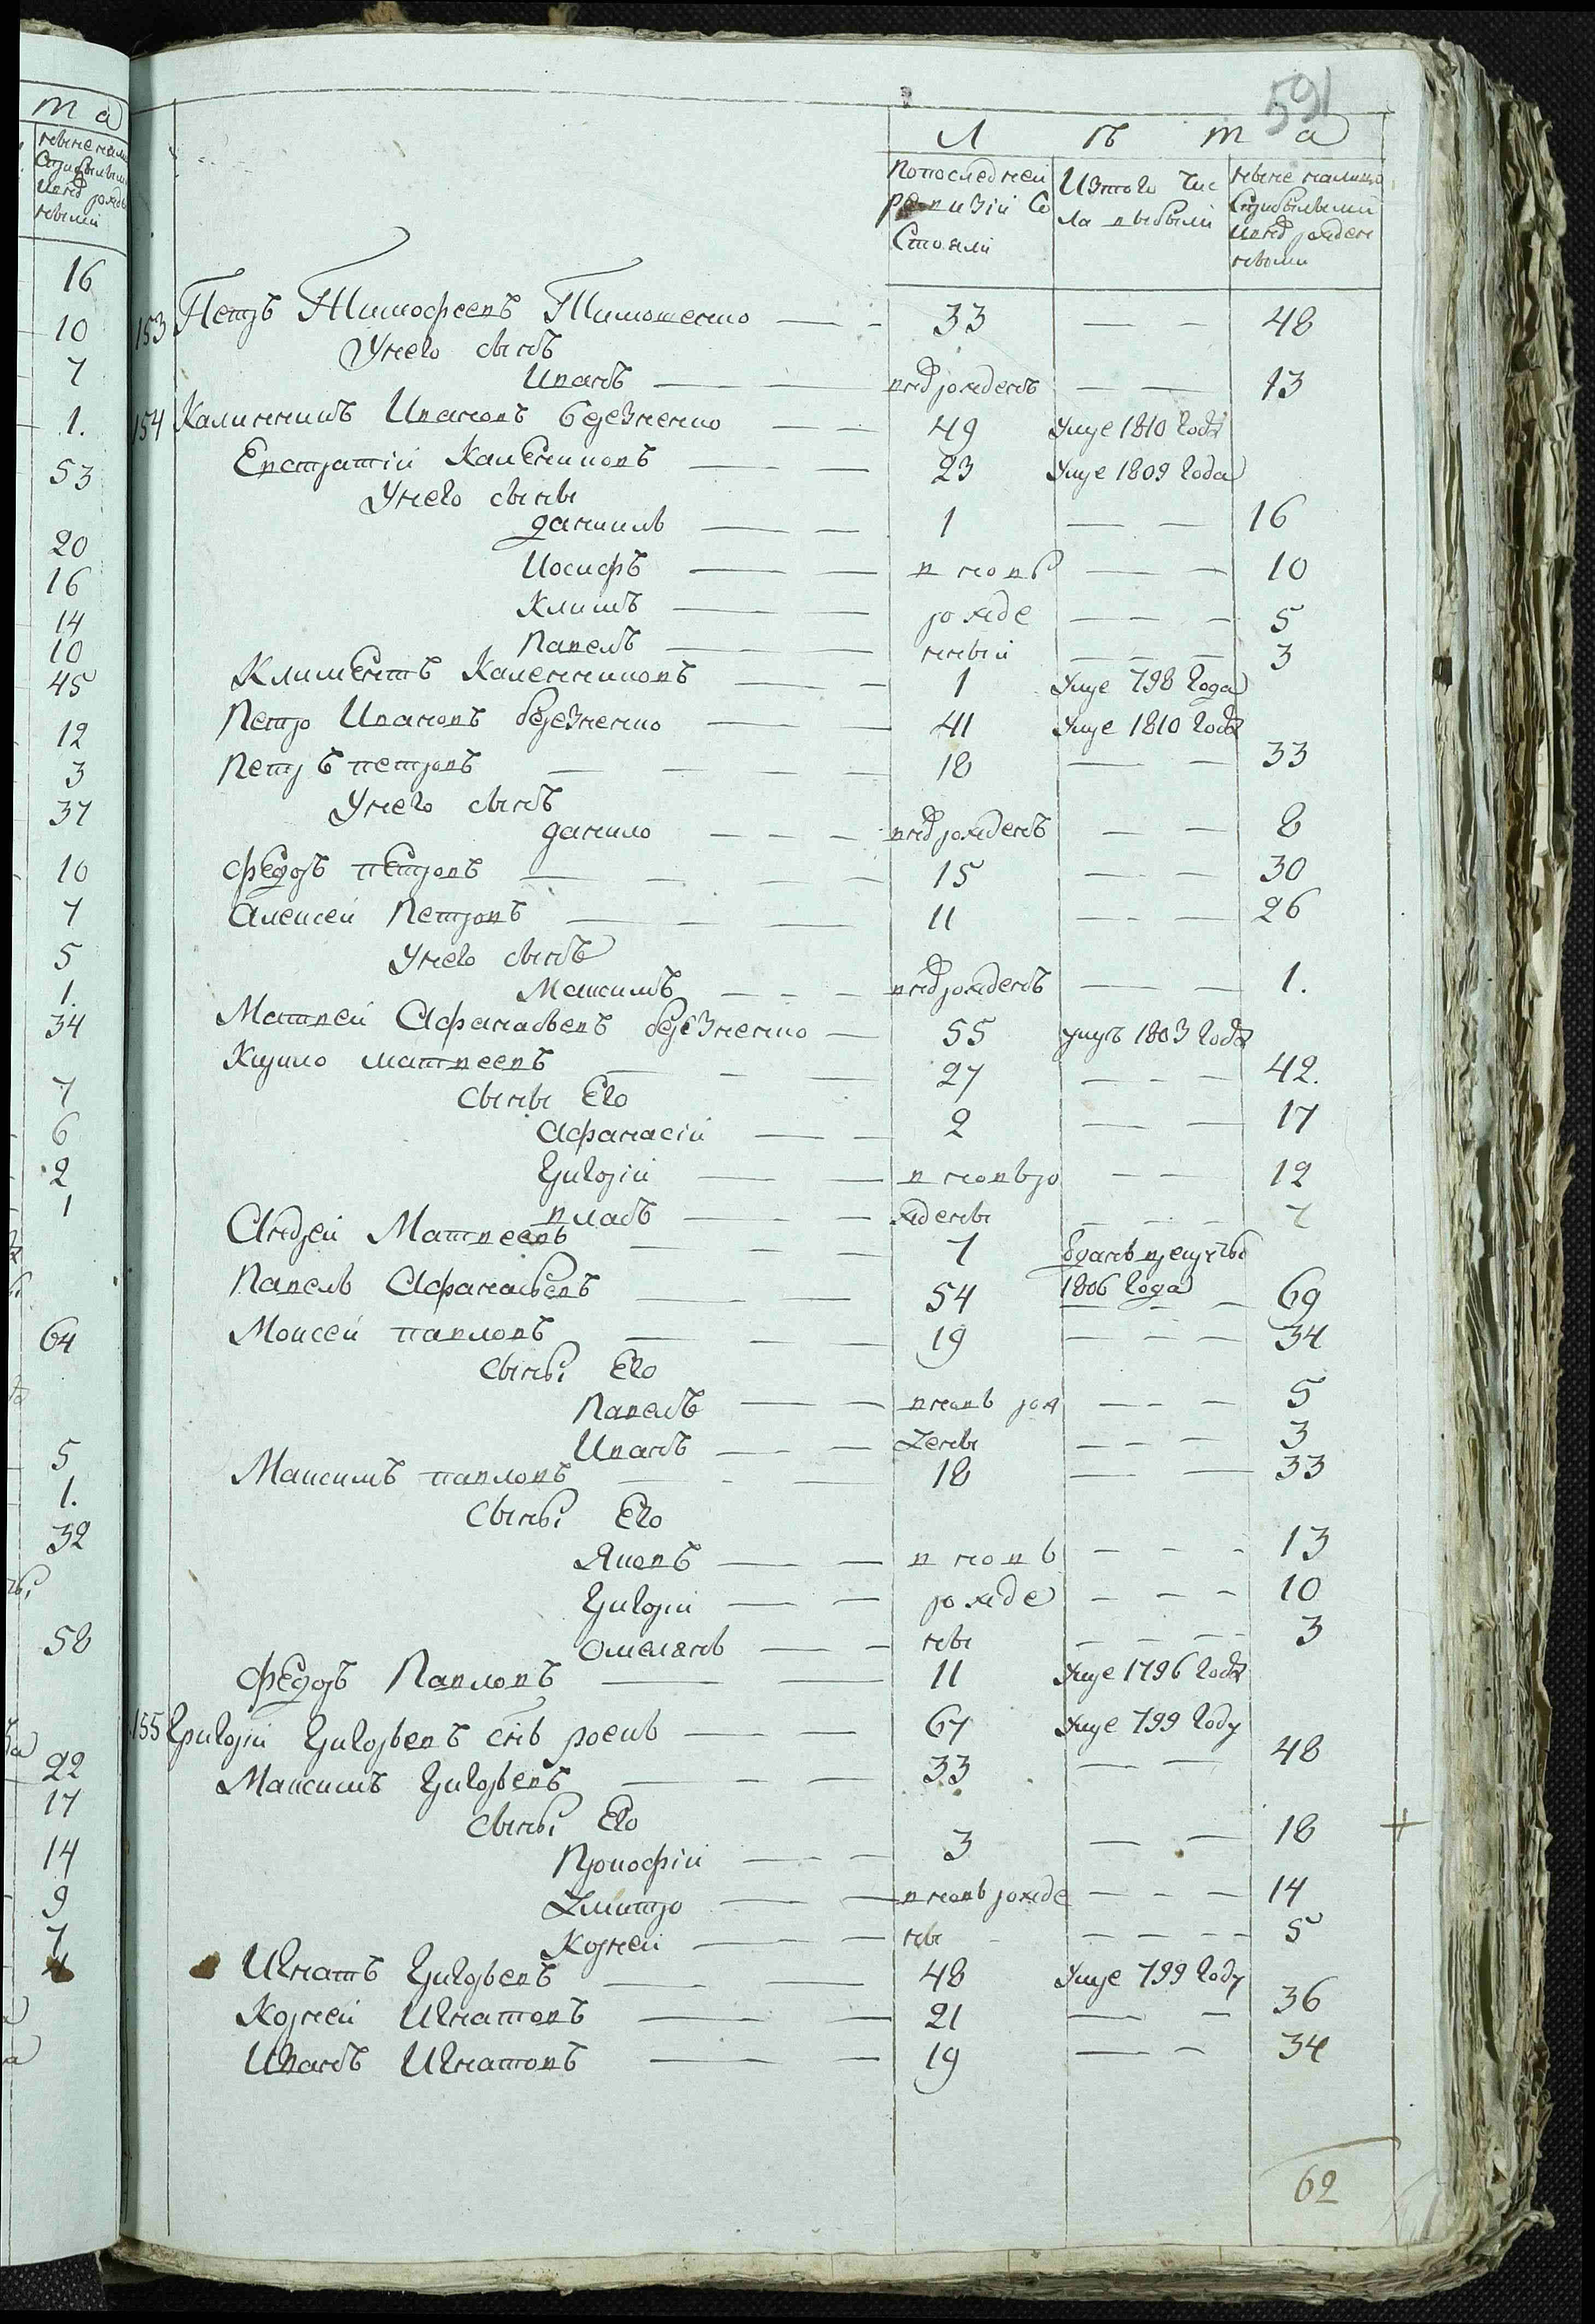 591
Л ѣ т а
Попоследней ревизіи Состояли
Изтого числа выбыли
ныне налицо Сприбылыми ивнѡврожденнеными
153 Петръ Тимофеевъ Тимошенко — 33 — 48
Унего сынъ
Иванъ — внѡврожденъ — 13
154 Калинникъ Ивановъ березненко — 49 Умре 1810 года
Евстратій Каленниковъ — 23 Умре 1809 года
Унего сыны
даниилъ — 1 — 16
Иосифъ — вновѣ — 10
Климъ — рожде — 5
Павелъ — нный — 3
Климентъ Каленниковъ — 1 Умре 798 года
Петро Ивановъ березненко — 41 Умре 1810 года
Петръ петровъ — 18 — 33
Унего сынъ
данило — внѡврожденъ — 8
федоръ петровъ — 15 — 30
Алексей Петровъ — 11 — 26
Унего сынъ
Максимъ — внѡврожденъ — 1.
Матвей Афанасьевъ березненко — 55 умръ 1803 года
Кирило матвеевъ — 27 — 42.
Сыны Его
Афанасій — 2 — 17
Григорій — вновьро — 12
власъ — жденны — 7
Андрей Матвеевъ — 7 Зданъ врекруты
1806 года
Павелъ Афанасьевъ — 54 — 69
Моисей павловъ — 19 — 34
Сыны Его
Павелъ — вновь рож — 5
Иванъ — дены — 3
Максимъ павловъ — 18 — 33
Сыны Его
Яковъ — вновь — 13
Григорій — рожде — 10
Омелянъ — ны — 3
федоръ Павловъ — 11 Умре 1796 года
155 Григорій Григорьевъ снъ роенко — 67 Умре 799 году
Максимъ Григорьевъ — 33 — 48
Сыны Его
Прокофій — 3 — 18
Дмитро — вновь рожде — 14
Корней — ны — 5
Игнатъ Григорьевъ — 48 Умре 799 году
Корней Игнатовъ — 21 — 36
Иванъ Игнатовъ — 19 — 34
62
та
16
10
7
1.
53
20
16
14
10
45
12
3
37
10
7
5
1.
34
7
6
2
1
64
5
1.
32
58
22
17
14
9
7
4